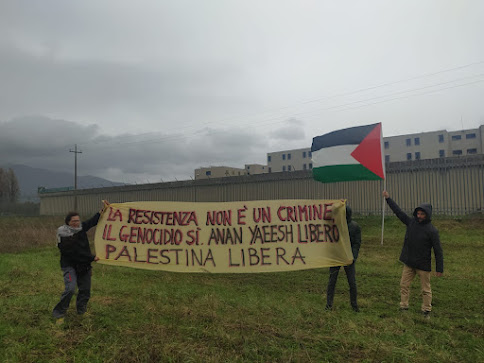 LA RESISTENZA NON È UN CRIMINE
IL GENOCIDIO SÌ. ANAN YAEESH LIBERO
PALESTINA LIBERA